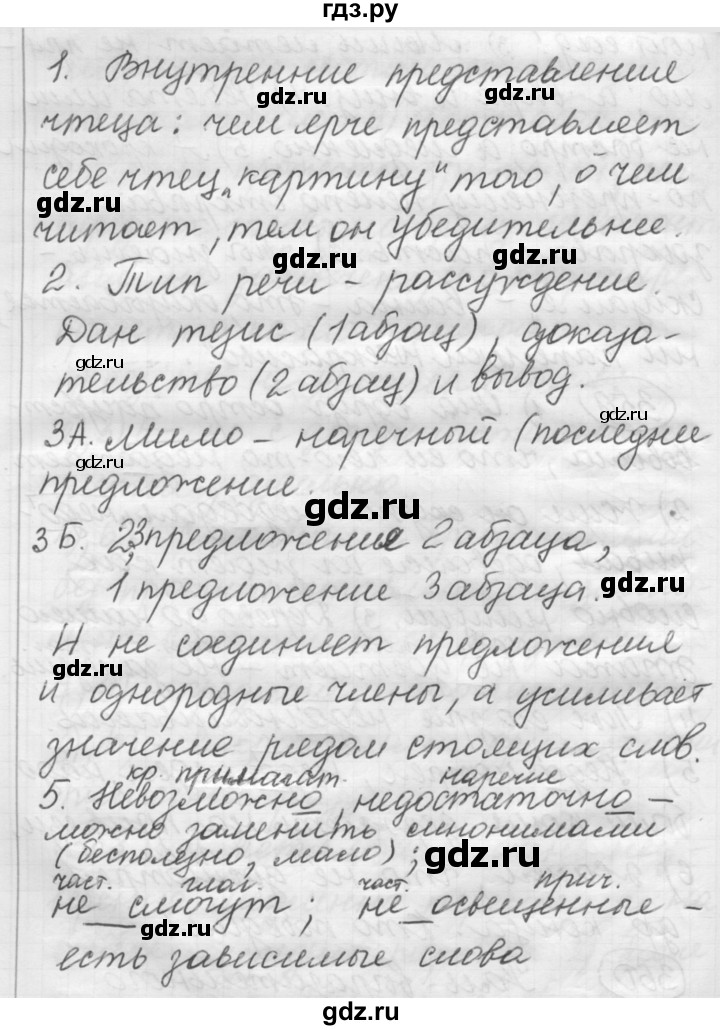 гдз.ру
1. Внутренние представление
чтеца: чем ярче представляет
себе чтец „картину" того, о чем
читает, тем он убедительнее.
2. Тип речи - рассуждение.
Дан тезис (1 абзац), доказа-
тельство (2 абзац) и вывод.
3А. Мимо - наречный (последнее
предложение.
3Б. 2,3 предложение 2 абзаца,
1 предложение 3 абзаца.
И не соединяет предложения
и однородные члены, а усиливает
значение рядом стоящих слов.
кр. прилагат. наречие
5. Невозможно, недостаточно -
можно заменить синонимами
(бесполезно, мало);
част. глаг. част. прич.
не смогут; не освещенные -
есть зависимые слова
gdz.ru
gdz.ru
gdz.ru
gdz.ru
gdz.ru
gdz.ru
gdz.ru
gdz.ru
gdz.ru
gdz.ru
gdz.ru
gdz.ru
gdz.ru
gdz.ru